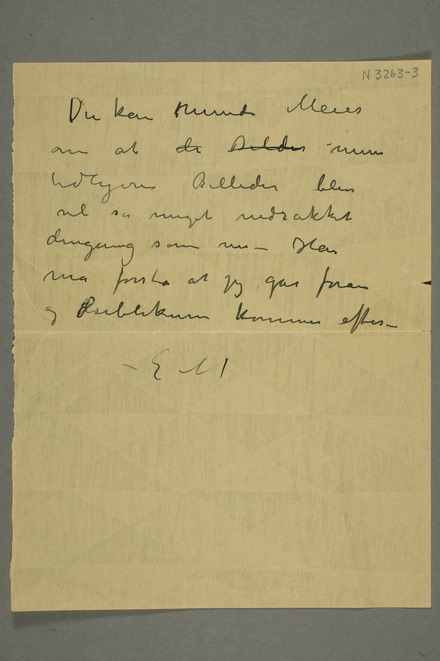 N 3263-3
Du kan minde Meier
om at de Billeder mine
tidligere Billeder blev
vel så meget nedrakket
dengang som nu –
må forstå at jeg går foran
og Publikum kommer efter –
– E M